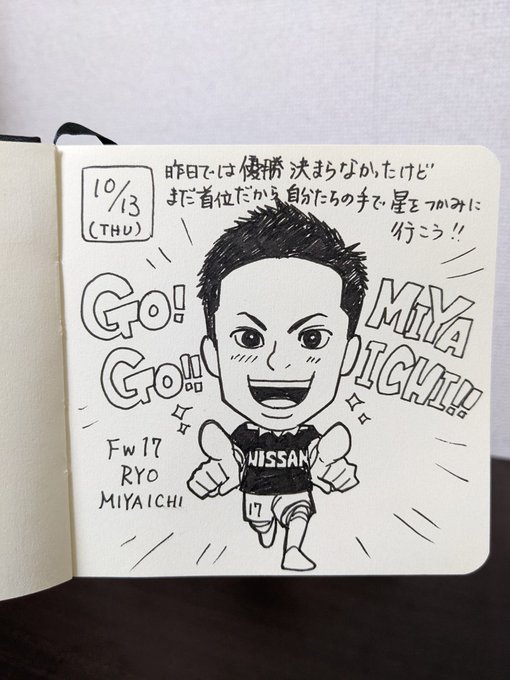 10/13
(THU)
昨日では優勝決まらなかったけど
まだ首位だから自分たちの手で星をつかみに
行こう!!
GO!
GO!!
MIYA
ICHI!!
FW17
RYO
MIYAICHI
NISSAN
17